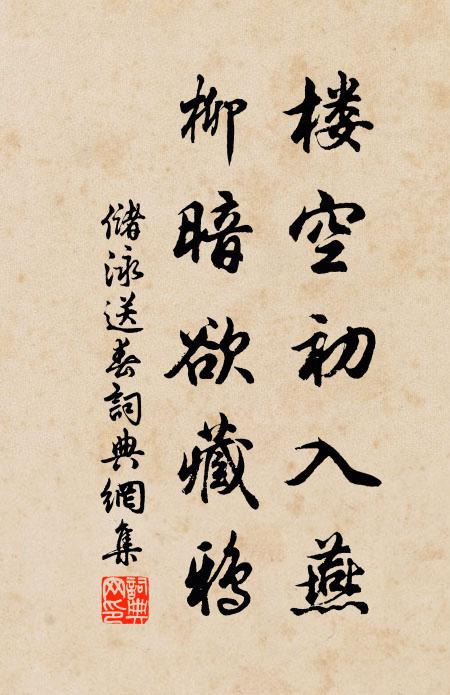 楼空初入燕
柳暗欲藏鸦
儲泳送春詞典網集
詞典网印